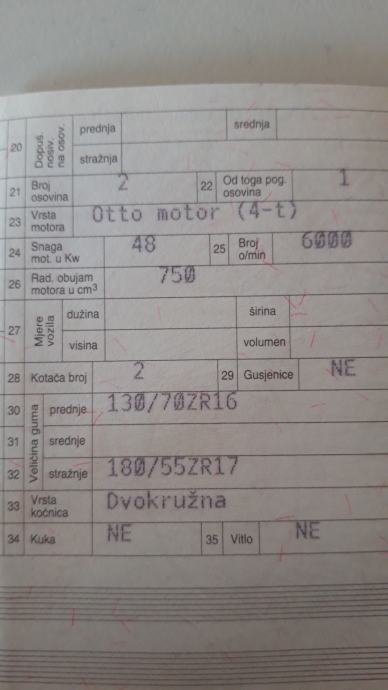 20 Dopuš. nosiv. na osov. prednja srednja
stražnja
21 Broj osovina 2 22 Od toga pog. osovina 1
23 Vrsta motora Otto motor (4-t)
24 Snaga mot. u Kw 48 25 Broj o/min 6000
26 Rad. obujam motora u cm³ 750
27 Mjere vozila dužina širina
visina volumen
28 Kotača broj 2 29 Gusjenice NE
30 Veličina guma prednje 130/70ZR16
31 srednje
32 stražnje 180/55ZR17
33 Vrsta kočnica Dvokružna
34 Kuka NE 35 Vitlo NE